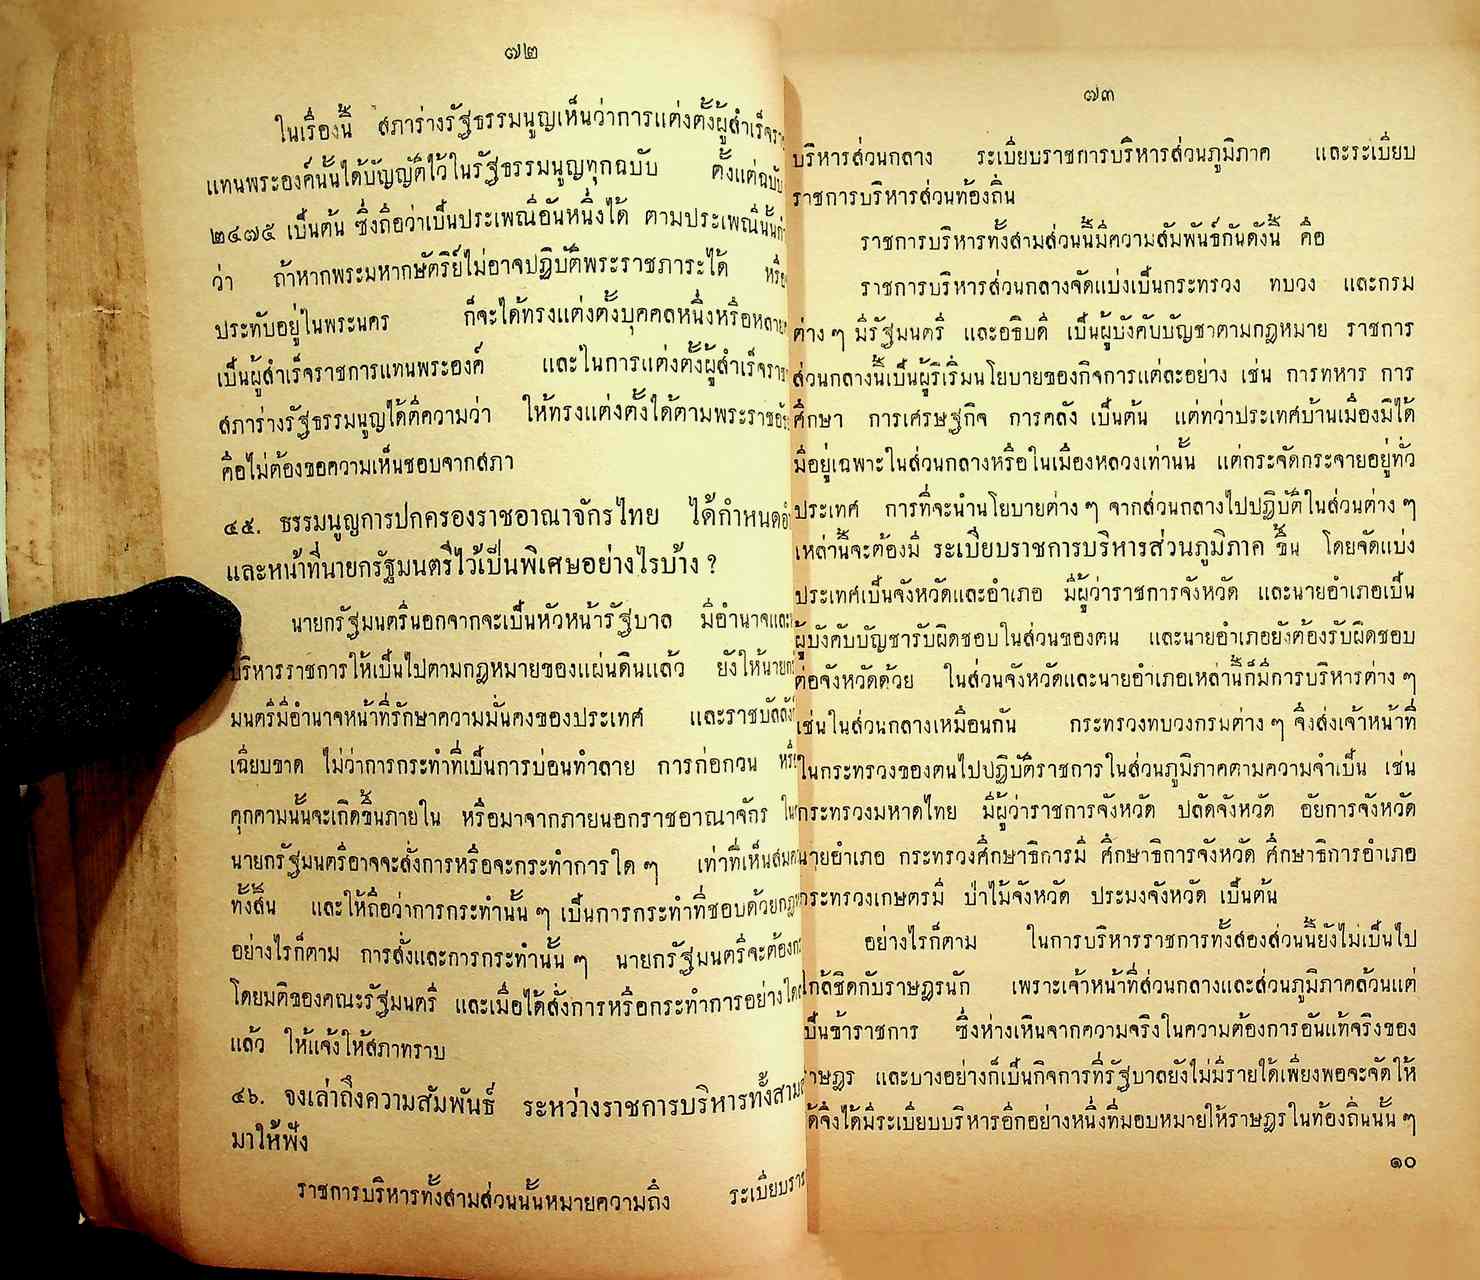 ๗๒
ในเรื่องนี้ สภาร่างรัฐธรรมนูญเห็นว่าการแต่งตั้งผู้สำเร็จรา
แทนพระองค์นั้นได้บัญญัติไว้ในรัฐธรรมนูญทุกฉบับ ตั้งแต่ฉบับ
๒๔๗๕ เป็นต้น ซึ่งถือว่าเป็นประเพณีอันหนึ่งได้ ตามประเพณีนั้น
ว่า ถ้าหากพระมหากษัตริย์ไม่อาจปฏิบัติพระราชภาระได้ หรือ
ประทับอยู่ในพระนคร ก็จะได้ทรงแต่งตั้งบุคคลหนึ่งหรือหลาย
เป็นผู้สำเร็จราชการแทนพระองค์ และในการแต่งตั้งผู้สำเร็จราช
สภาร่างรัฐธรรมนูญได้ตีความว่า ให้ทรงแต่งตั้งได้ตามพระราชอั
คือไม่ต้องขอความเห็นชอบจากสภา
๔๕. ธรรมนูญการปกครองราชอาณาจักรไทย ได้กำหนดอำ
และหน้าที่นายกรัฐมนตรีไว้เป็นพิเศษอย่างไรบ้าง ?
นายกรัฐมนตรีนอกจากจะเป็นหัวหน้ารัฐบาล มีอำนาจและ
บริหารราชการให้เป็นไปตามกฎหมายของแผ่นดินแล้ว ยังให้นายก
มนตรีมีอำนาจหน้าที่รักษาความมั่นคงของประเทศ และราชบัลลังก์
เฉียบขาด ไม่ว่าการกระทำที่เป็นการบ่อนทำลาย การก่อกวน หรือ
คุกคามนั้นจะเกิดขึ้นภายใน หรือมาจากภายนอกราชอาณาจักร ใน
นายกรัฐมนตรีอาจจะสั่งการหรือจะกระทำการใด ๆ เท่าที่เห็นสมค
ทั้งสิ้น และให้ถือว่าการกระทำนั้น ๆ เป็นการกระทำที่ชอบด้วยกฎ
อย่างไรก็ตาม การสั่งและการกระทำนั้น ๆ นายกรัฐมนตรีจะต้องก
โดยมติของคณะรัฐมนตรี และเมื่อได้สั่งการหรือกระทำการอย่างใด
แล้ว ให้แจ้งให้สภาทราบ
๔๖. จงเล่าถึงความสัมพันธ์ ระหว่างราชการบริหารทั้งสามส่
มาให้ฟัง
ราชการบริหารทั้งสามส่วนนั้นหมายความถึง ระเบียบราช
๗๓
บริหารส่วนกลาง ระเบียบราชการบริหารส่วนภูมิภาค และระเบียบ
ราชการบริหารส่วนท้องถิ่น
ราชการบริหารทั้งสามส่วนนี้มีความสัมพันธ์กันดังนี้ คือ
ราชการบริหารส่วนกลางจัดแบ่งเป็นกระทรวง ทบวง และกรม
ต่าง ๆ มีรัฐมนตรี และอธิบดี เป็นผู้บังคับบัญชาตามกฎหมาย ราชการ
ส่วนกลางนี้เป็นผู้ริเริ่มนโยบายของกิจการแต่ละอย่าง เช่น การทหาร การ
ศึกษา การเศรษฐกิจ การคลัง เป็นต้น แต่ทว่าประเทศบ้านเมืองมิได้
มีอยู่เฉพาะในส่วนกลางหรือในเมืองหลวงเท่านั้น แต่กระจัดกระจายอยู่ทั่ว
ประเทศ การที่จะนำนโยบายต่าง ๆ จากส่วนกลางไปปฏิบัติในส่วนต่าง ๆ
เหล่านี้จะต้องมี ระเบียบราชการบริหารส่วนภูมิภาค ขึ้น โดยจัดแบ่ง
ประเทศเป็นจังหวัดและอำเภอ มีผู้ว่าราชการจังหวัด และนายอำเภอเป็น
ผู้บังคับบัญชารับผิดชอบในส่วนของตน และนายอำเภอยังต้องรับผิดชอบ
ต่อจังหวัดด้วย ในส่วนจังหวัดและนายอำเภอเหล่านี้ก็มีการบริหารต่าง ๆ
เช่นในส่วนกลางเหมือนกัน กระทรวงทบวงกรมต่าง ๆ จึงส่งเจ้าหน้าที่
ในกระทรวงของตนไปปฏิบัติราชการในส่วนภูมิภาคตามความจำเป็น เช่น
กระทรวงมหาดไทย มีผู้ว่าราชการจังหวัด ปลัดจังหวัด อัยการจังหวัด
นายอำเภอ กระทรวงศึกษาธิการมี ศึกษาธิการจังหวัด ศึกษาธิการอำเภอ
กระทรวงเกษตรมี ป่าไม้จังหวัด ประมงจังหวัด เป็นต้น
อย่างไรก็ตาม ในการบริหารราชการทั้งสองส่วนนี้ยังไม่เป็นไป
ใกล้ชิดกับราษฎรนัก เพราะเจ้าหน้าที่ส่วนกลางและส่วนภูมิภาคล้วนแต่
เป็นข้าราชการ ซึ่งห่างเหินจากความจริงในความต้องการอันแท้จริงของ
ราษฎร และบางอย่างก็เป็นกิจการที่รัฐบาลยังไม่มีรายได้เพียงพอจะจัดให้
ได้จึงได้มีระเบียบบริหารอีกอย่างหนึ่งที่มอบหมายให้ราษฎรในท้องถิ่นนั้น ๆ
๑๐